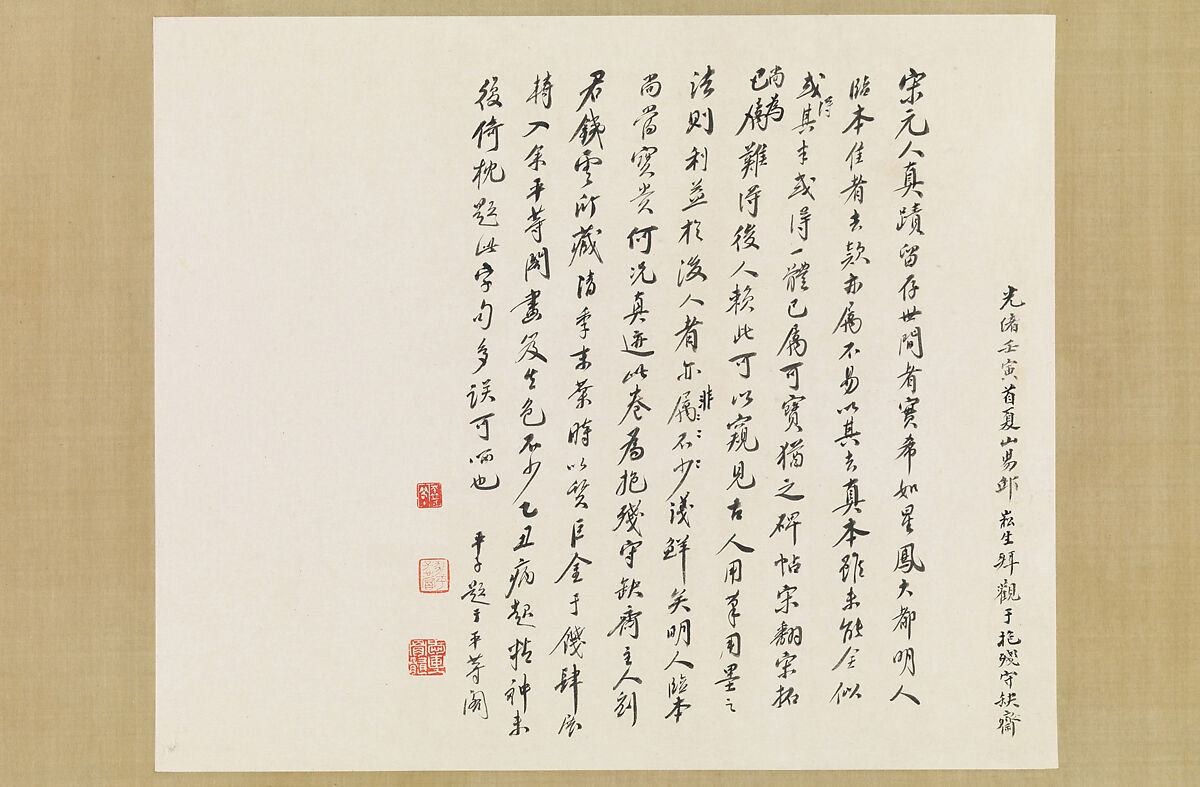 光緒壬寅首夏山陽邱崧生拜觀于抱殘守缺齋
宋元人真蹟留存世間者實希如星鳳大都明人
臨本佳者去款亦屬不易以其去真本雖未能全似
或得其半或得一體已屬可寶猶之碑帖宋翻宋拓
尚為已屬難得後人賴此可以窺見古人用筆用墨之
法則利益於後人者亦屬非不少淺鮮矣明人臨本
尚當寶貴何況真迹此卷為抱殘守缺齋主人劉
君鐵雲所藏清季末葉時以質巨金于餞肆展
轉入余平等閣畫笈生色不少乙丑病起精神未
後倚枕題此字句多誤可哂也
平子題于平等閣